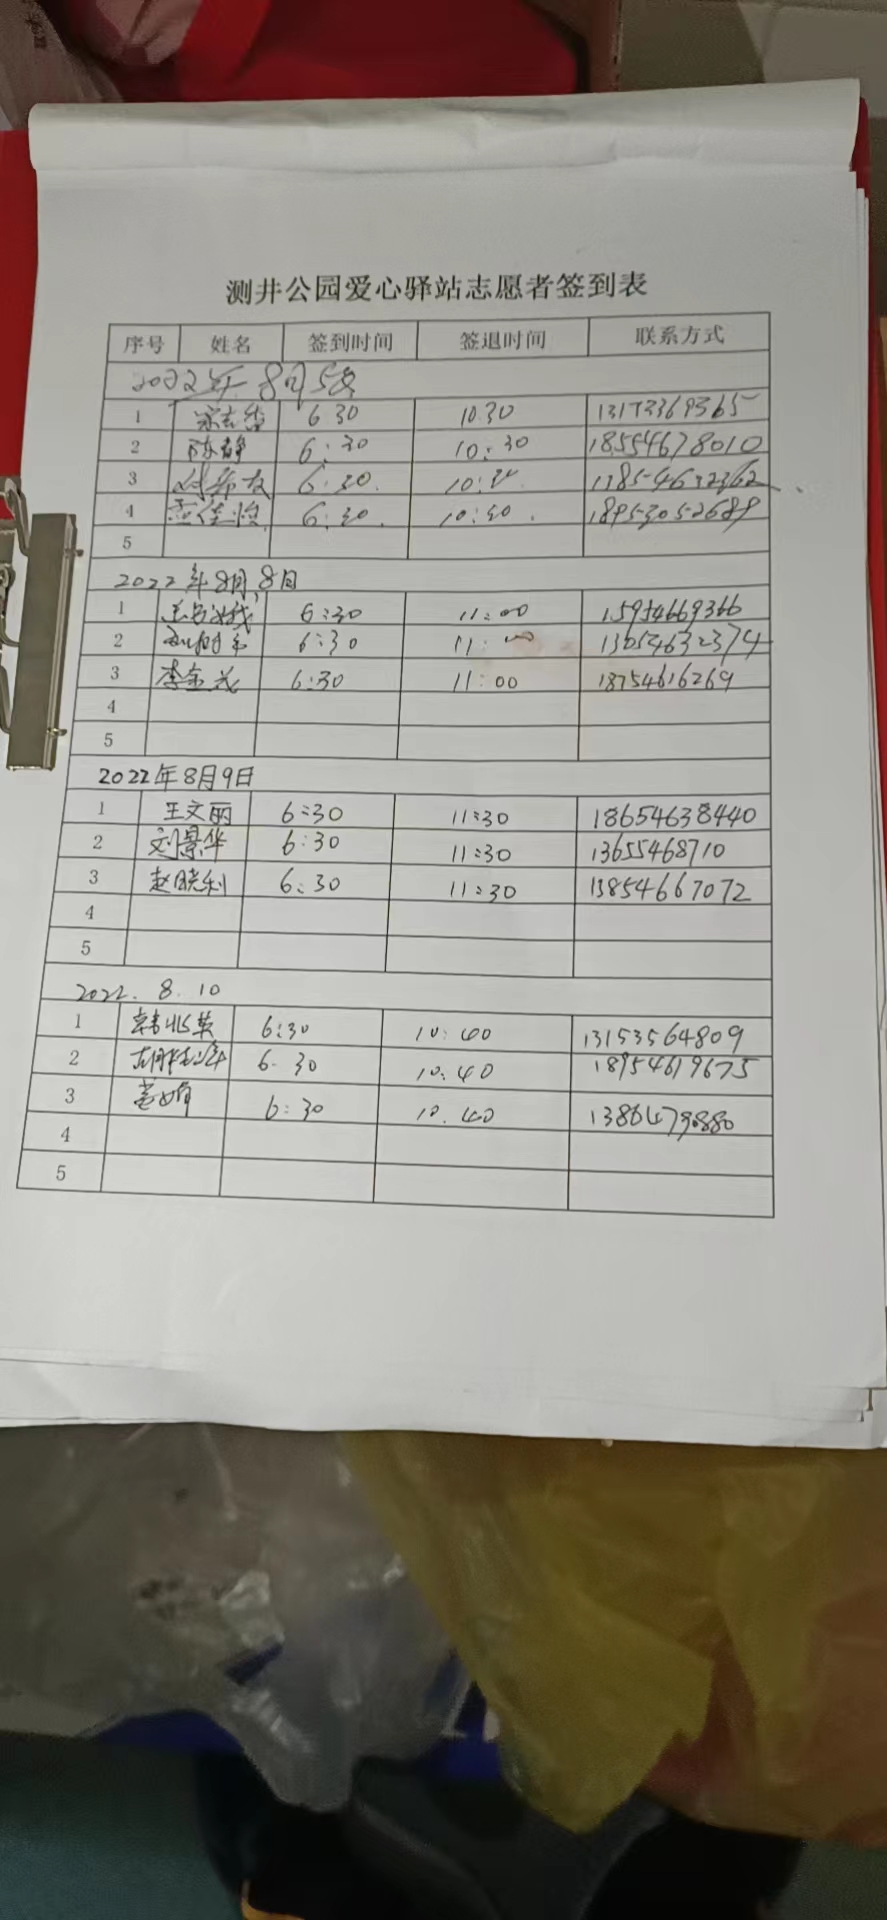 测井公园爱心驿站志愿者签到表
序号 姓名 签到时间 签退时间 联系方式
2022年8月5日
1 6 30 10 30
2 陈静 6:30 10:30 18554678010
3 6:30
4 6:30 18953052689
5
2022年8月8日
1 6:30 11:00 15954669366
2 6:30 11:00
3 李金茂 6:30 11:00 18754616269
4
5
2022年8月9日
1 王文丽 6:30 11:30 18654638440
2 刘景华 6:30 11:30 13655468710
3 赵晓利 6:30 11:30 13854667072
4
5
2022. 8. 10
1 6:30 10:40 13153564809
2 6. 30 10:40 18954619675
3 6:30 10.40
4
5